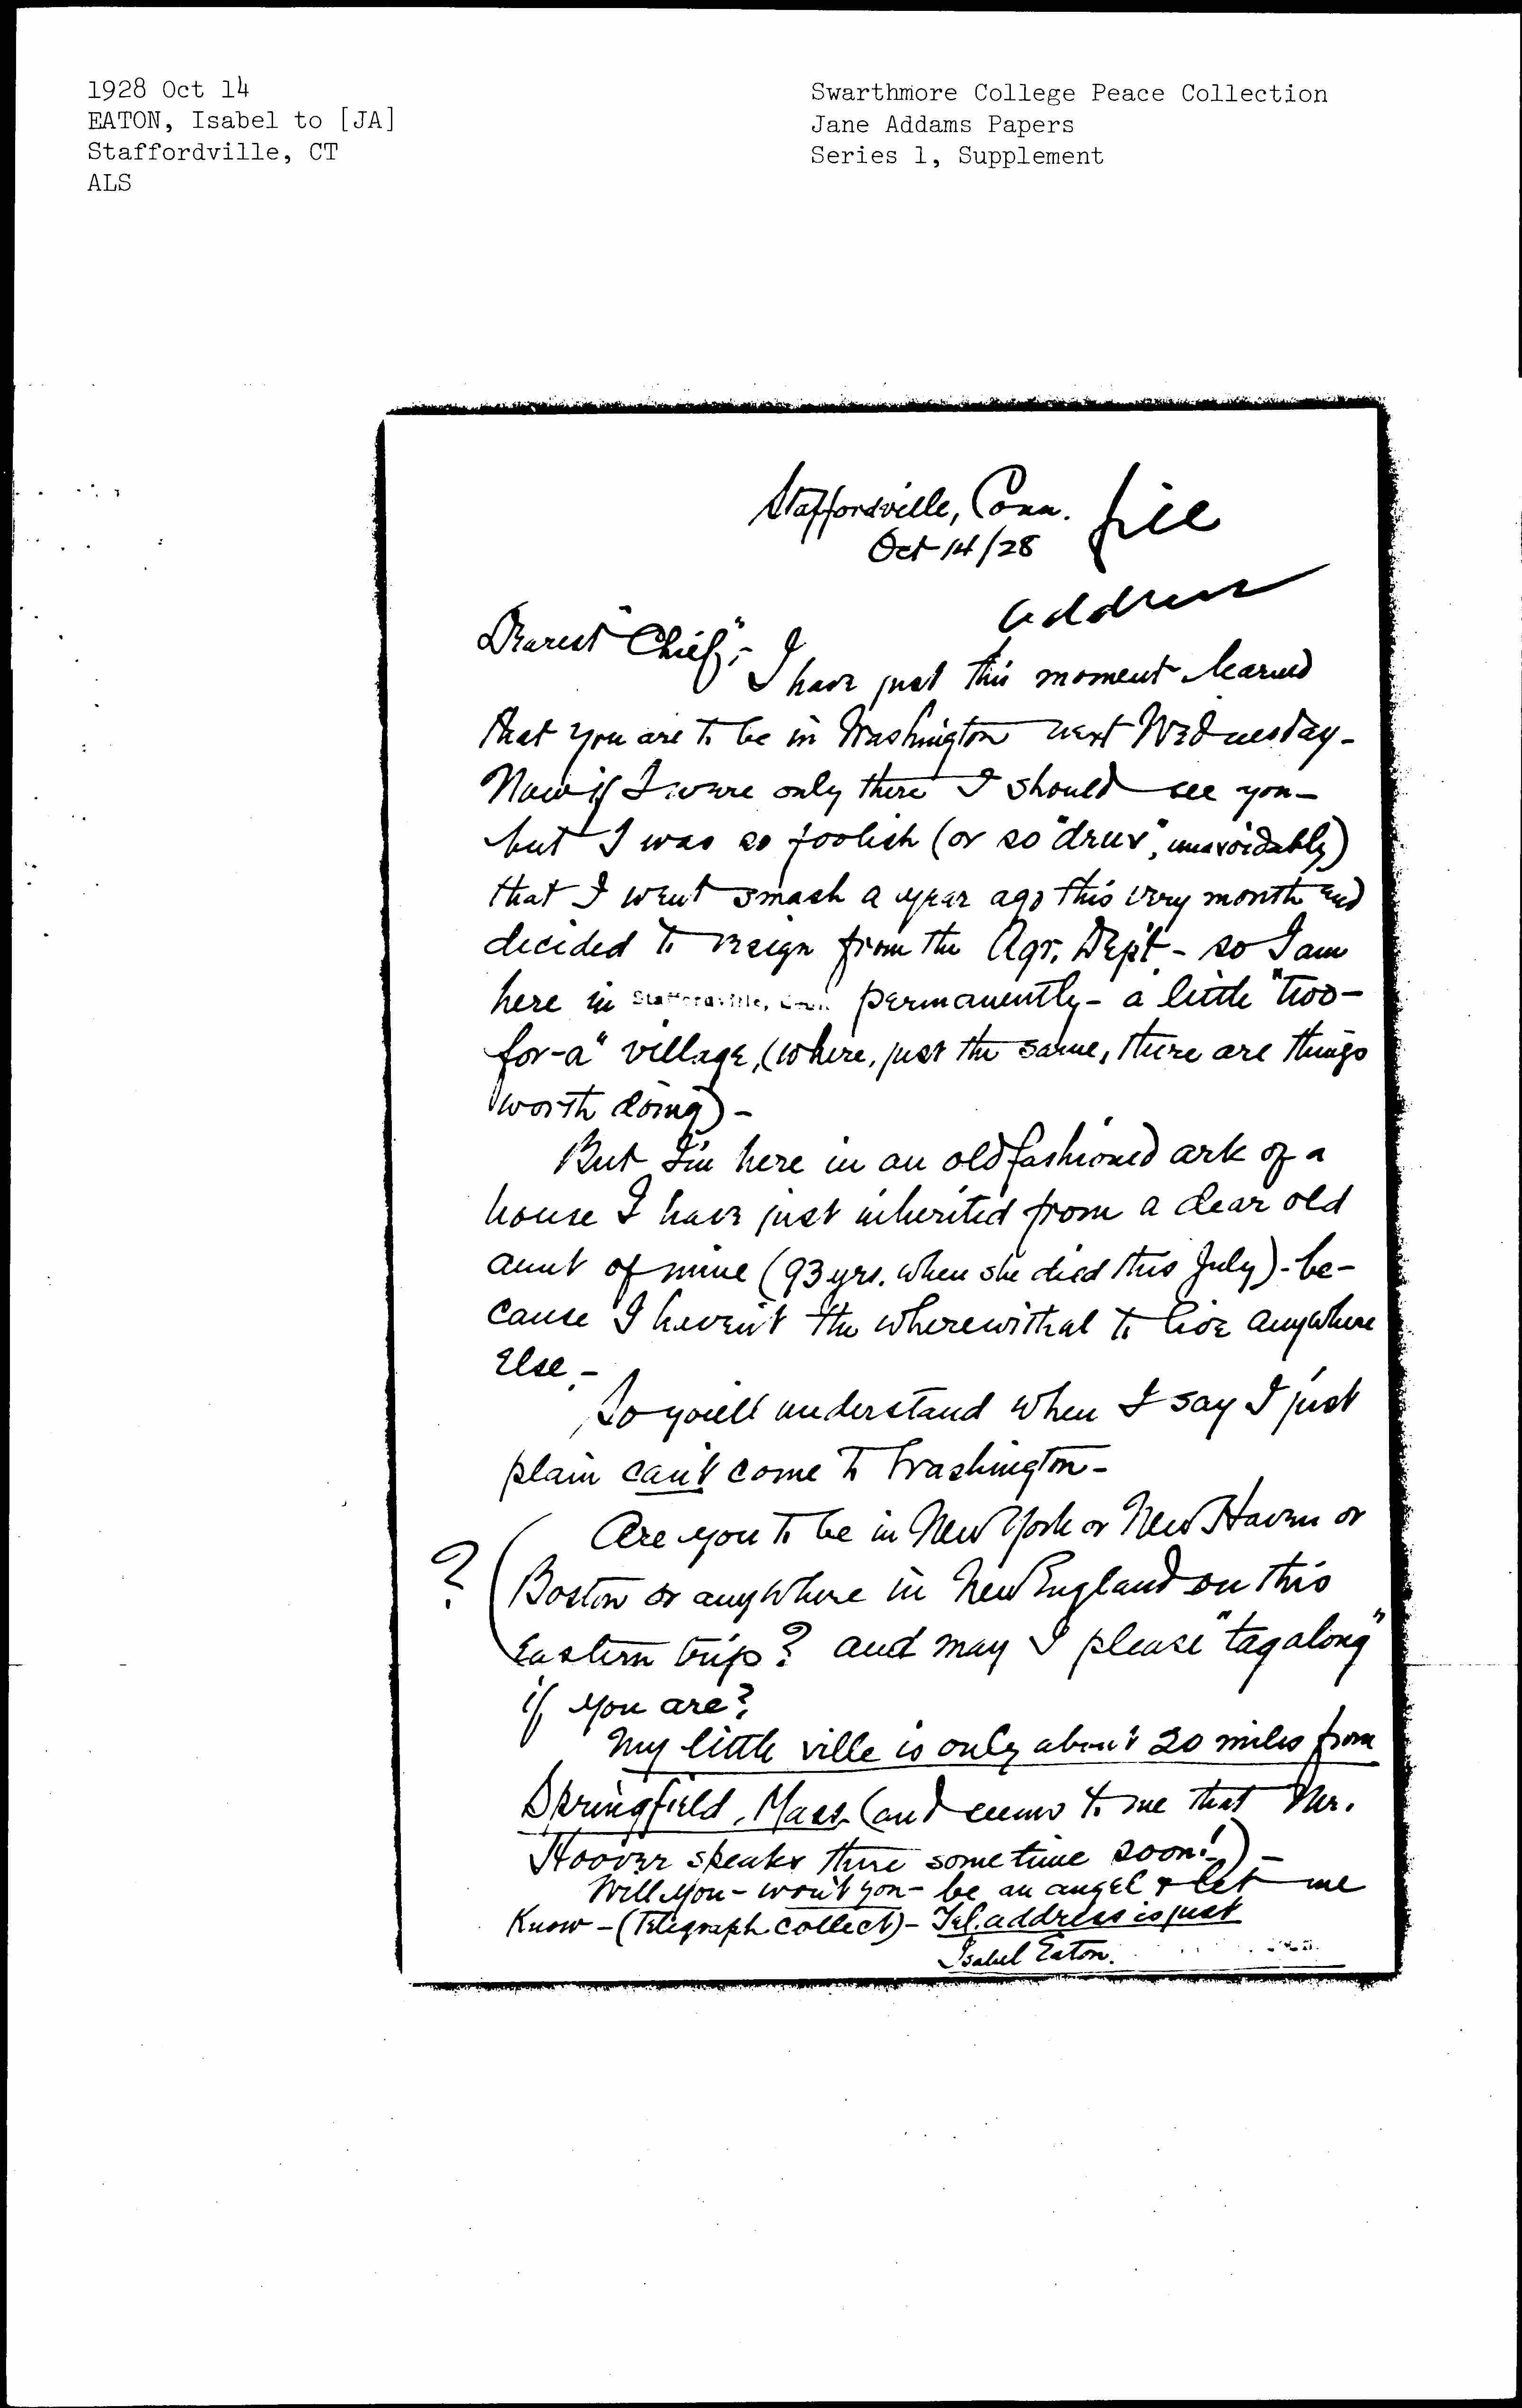 1928 Oct 14
EATON, Isabel to [JA]
Staffordville, CT
ALS
Swarthmore College Peace Collection
Jane Addams Papers
Series 1, Supplement
Staffordville, Conn.
Oct 14/28
file
address
Dearest "Chief",-
I have just this moment learned
that you are to be in Washington next Wednesday-
Now if I were only there I should see you-
but I was so foolish (or so "druv", unavoidably)
that I went smash a year ago this very month and
decided to resign from the Agr. Dep't - so I am
here in Staffordville, Conn. permanently - a little "two-
for-a" village, (where, just the same, there are things
worth doing) -
But I'm here in an old fashioned ark of a
house I have just inherited from a dear old
aunt of mine (93 yrs. when she died this July) - be-
cause I haven't the wherewithal to live anywhere
else.-
So you'll understand when I say I just
plain can't come to Washington-
Are you to be in New York or New Haven or
? ( Boston or anywhere in New England on this
Eastern trip? and may I please "tag along"
if you are?
My little ville is only about 20 miles from
Springfield, Mass. (and seems to me that Mr.
Hoover speaks there sometime soon!) -
Will you - won't you - be an angel & let me
Know - (Telegraph collect) - Tel. address is just
Isabel Eaton.